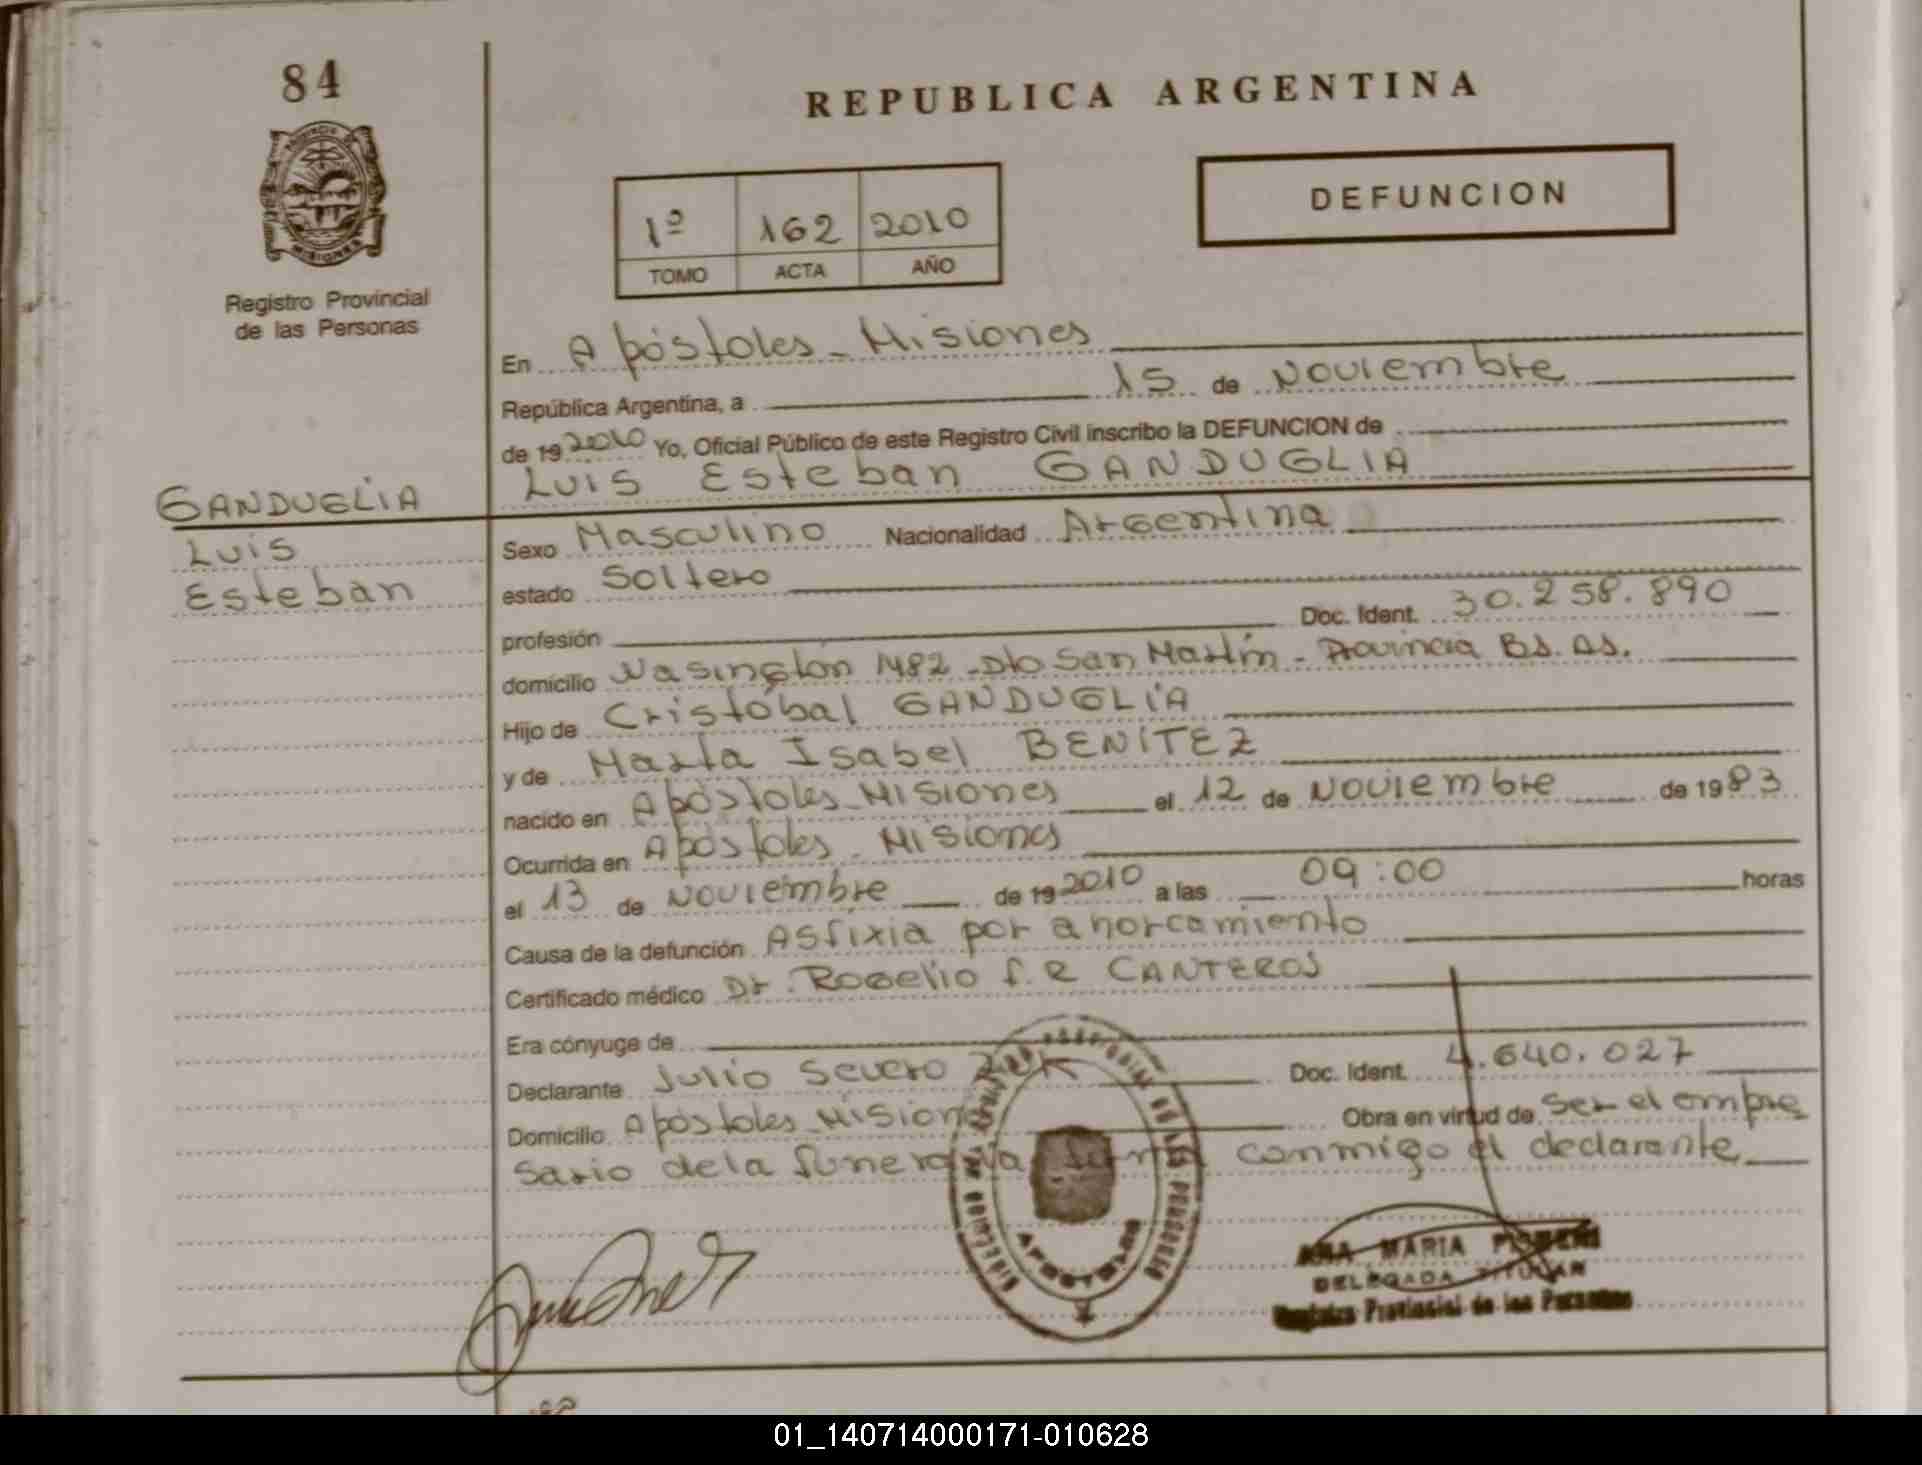 84
REPUBLICA ARGENTINA
DEFUNCION
1º 162 2010
TOMO ACTA AÑO
MISIONES
Registro Provincial
de las Personas
En Apóstoles - Misiones
República Argentina, a 15 de Noviembre
de 19 2010 Yo, Oficial Público de este Registro Civil inscribo la DEFUNCION de
Luis Esteban GANDUGLIA
GANDUGLIA
Luis
Esteban
Sexo Masculino Nacionalidad Argentina
estado Soltero
profesión Doc. Ident. 30.258.890
domicilio Wasington 1482 - Dto San Martín - Provincia Bs. As.
Hijo de Cristóbal GANDUGLIA
y de Marta Isabel BENITEZ
nacido en Apóstoles - Misiones el 12 de Noviembre de 1983
Ocurrida en Apóstoles - Misiones
el 13 de Noviembre de 19 2010 a las 09:00 horas
Causa de la defunción Asfixia por ahorcamiento
Certificado médico Dr. Rogelio f. R CANTEROS
Era cónyuge de
Declarante Julio Severo Doc. Ident. 4.640.027
Domicilio Apóstoles Misiones Obra en virtud de Ser el empre
sario de la funeraria conmigo el declarante
APOSTOLES
ANA MARIA
DELEGADA TITULAR
Registro Provincial de las Personas
01_140714000171-010628